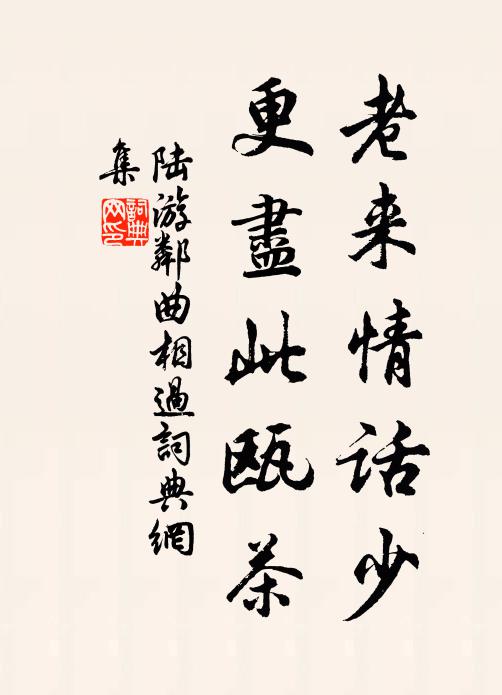 老来情话少
更盡此甌茶
陆游鄰曲相過詞典網
集
詞典
网印